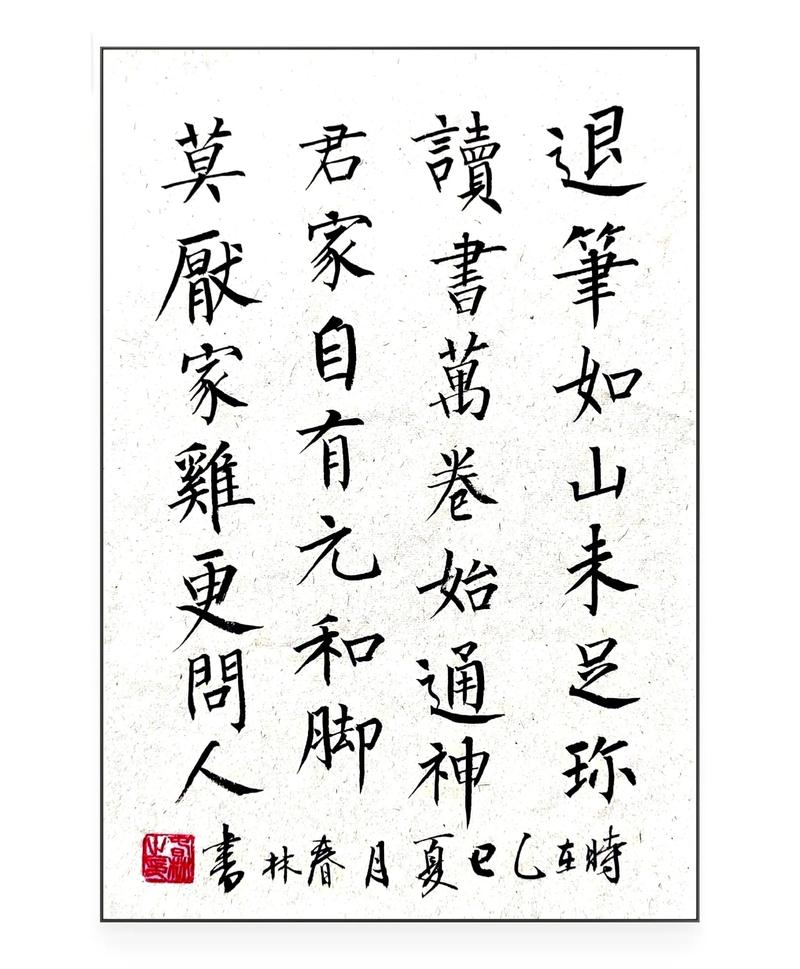 退筆如山未足珎
讀書萬卷始通神
君家自有元和脚
莫厭家雞更問人
時在乙巳夏月春林書